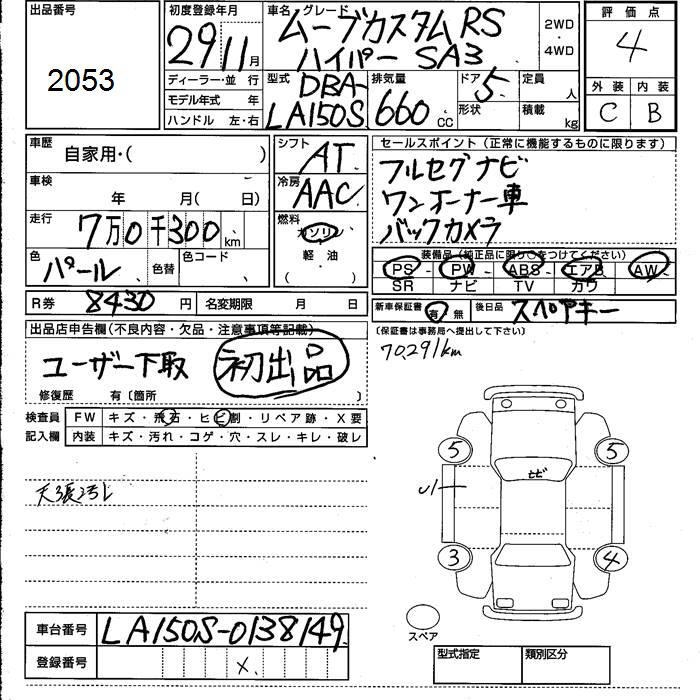 出品番号 2053
初度登録年月 29年11月
車名 グレード ムーブカスタムRS
ハイパー SA3
2WD ・ 4WD
評価点 4
外装 内装
C B
ディーラー・並行
モデル年式 年
ハンドル 左・右
型式 DBA-
LA150S
排気量 660 CC
ドア 5
形状
定員 人
積載 kg
車歴 自家用・( )
車検 年 月( 日)
走行 7万0千300 km
色 パール 色替 色コード
R券 8430円 名変期限 月 日
シフト AT
冷房 AAC
燃料 ガソリン
軽・油
( )
セールスポイント(正常に機能するものに限ります)
フルセグナビ
ワンオーナー車
バックカメラ
装備品(純正品に限り○をつけてください)
PS PW ABS エアB AW
SR ナビ TV カワ
新車保証書 有/無 後日品 スペアキー
(保証書は事務局へ提出して下さい)
70291km
出品店申告欄(不良内容・欠品・注意事項等記載)
ユーザー下取 初出品
修復歴 有〔箇所 〕
検査員 記入欄
FW キズ・飛石・ヒビ割・リペア跡・X要
内装 キズ・汚れ・コゲ・穴・スレ・キレ・破レ
天張汚レ
5 5
ヒビ
U1
3 4
スペア
車台番号 LA150S-0138149
登録番号 X
型式指定 類別区分